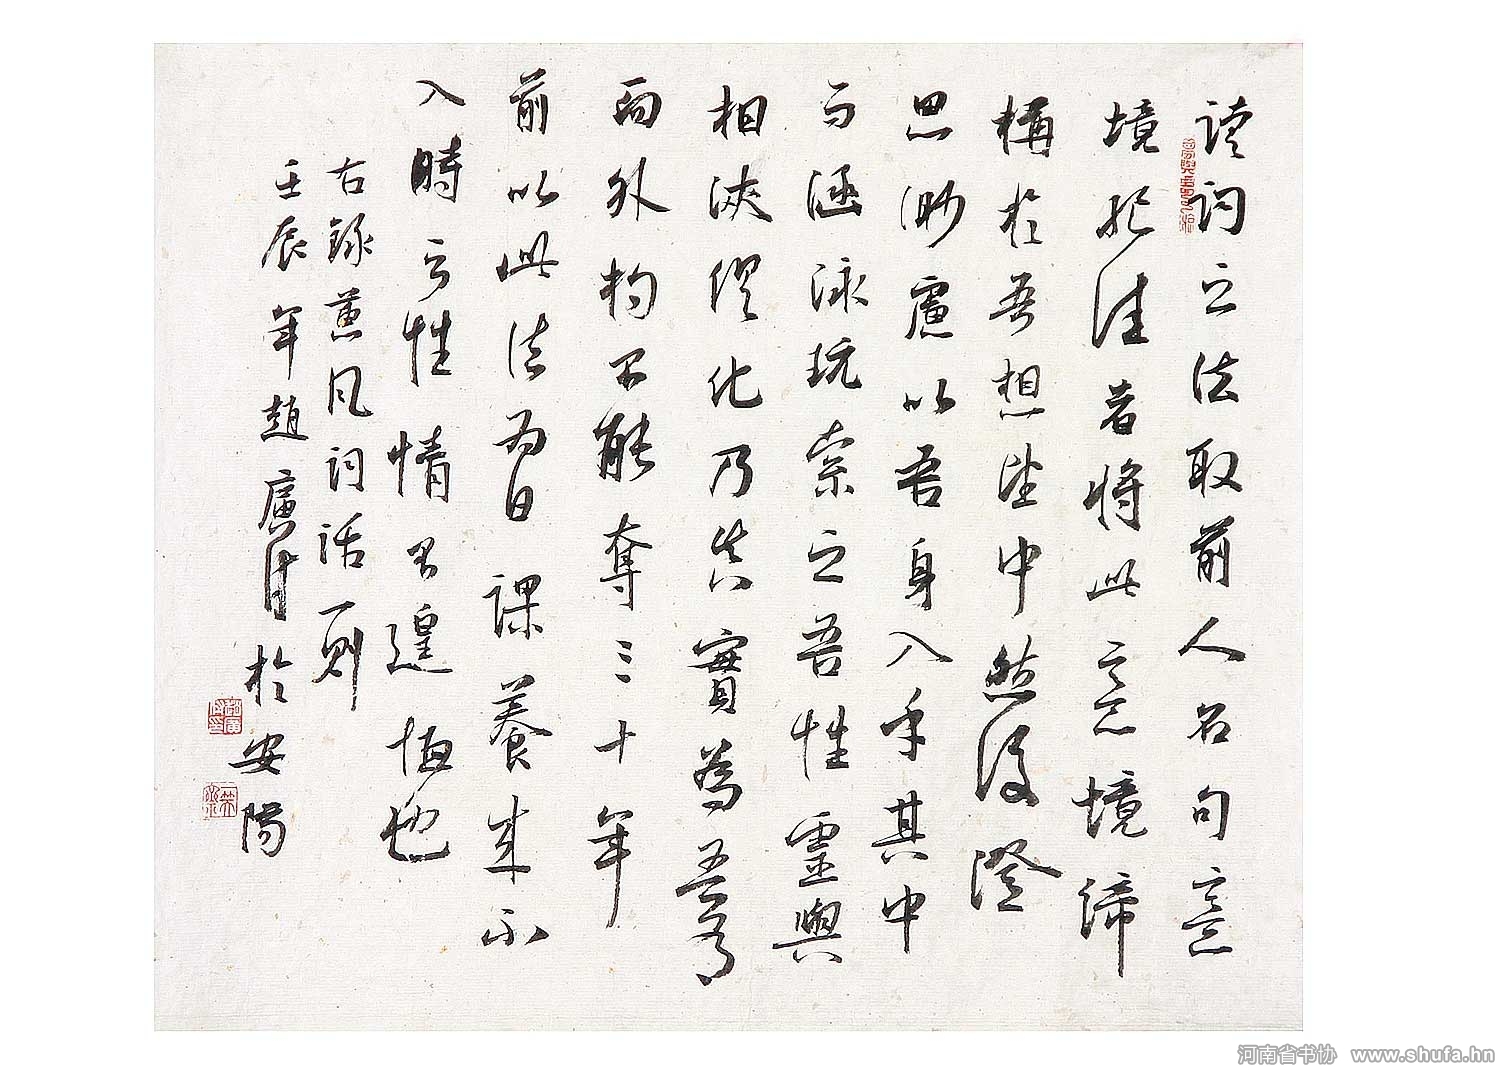 讀詞之法取前人名句意
境絕佳者將此意境締
構於吾想望中然後澄
思渺慮以吾身入乎其中
而涵泳玩索之吾性靈與
相浹俱化乃真實為吾有
而外物不能奪三十年
前以此法為日課養成不
入時之性情不遑恤也
右錄蕙風詞話一則
壬辰年趙廣月於安陽
河南省书协 www.shufa.hn